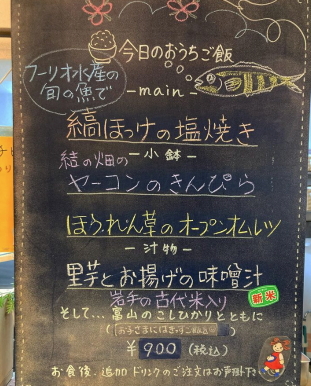 今日のおうちご飯
フーリオ水産の
旬の魚で
-main-
縞ほっけの塩焼き
-小鉢-
結の畑の
ヤーコンのきんぴら
ほうれん草のオープンオムレツ
-汁物-
里芋とお揚げの味噌汁
岩手の古代米入り
新米
そして...富山のこしひかりとともに
¥900(税込)
お食後、追加ドリンクのご注文はお声掛け下